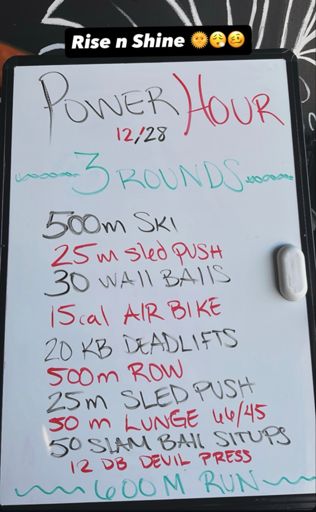 Rise n Shine 🌞😮‍💨🥴
POWER HOUR
12/28
3 ROUNDS
500m SKI
25m Sled PUSH
30 WAll BAllS
15cal AIR BIKE
20 KB DEADLIFTS
500m ROW
25m SLED PUSH
50 m LUNGE 46/45
50 SLAM BAll SITUPS
12 DB DEVIL PRESS
600M RUN